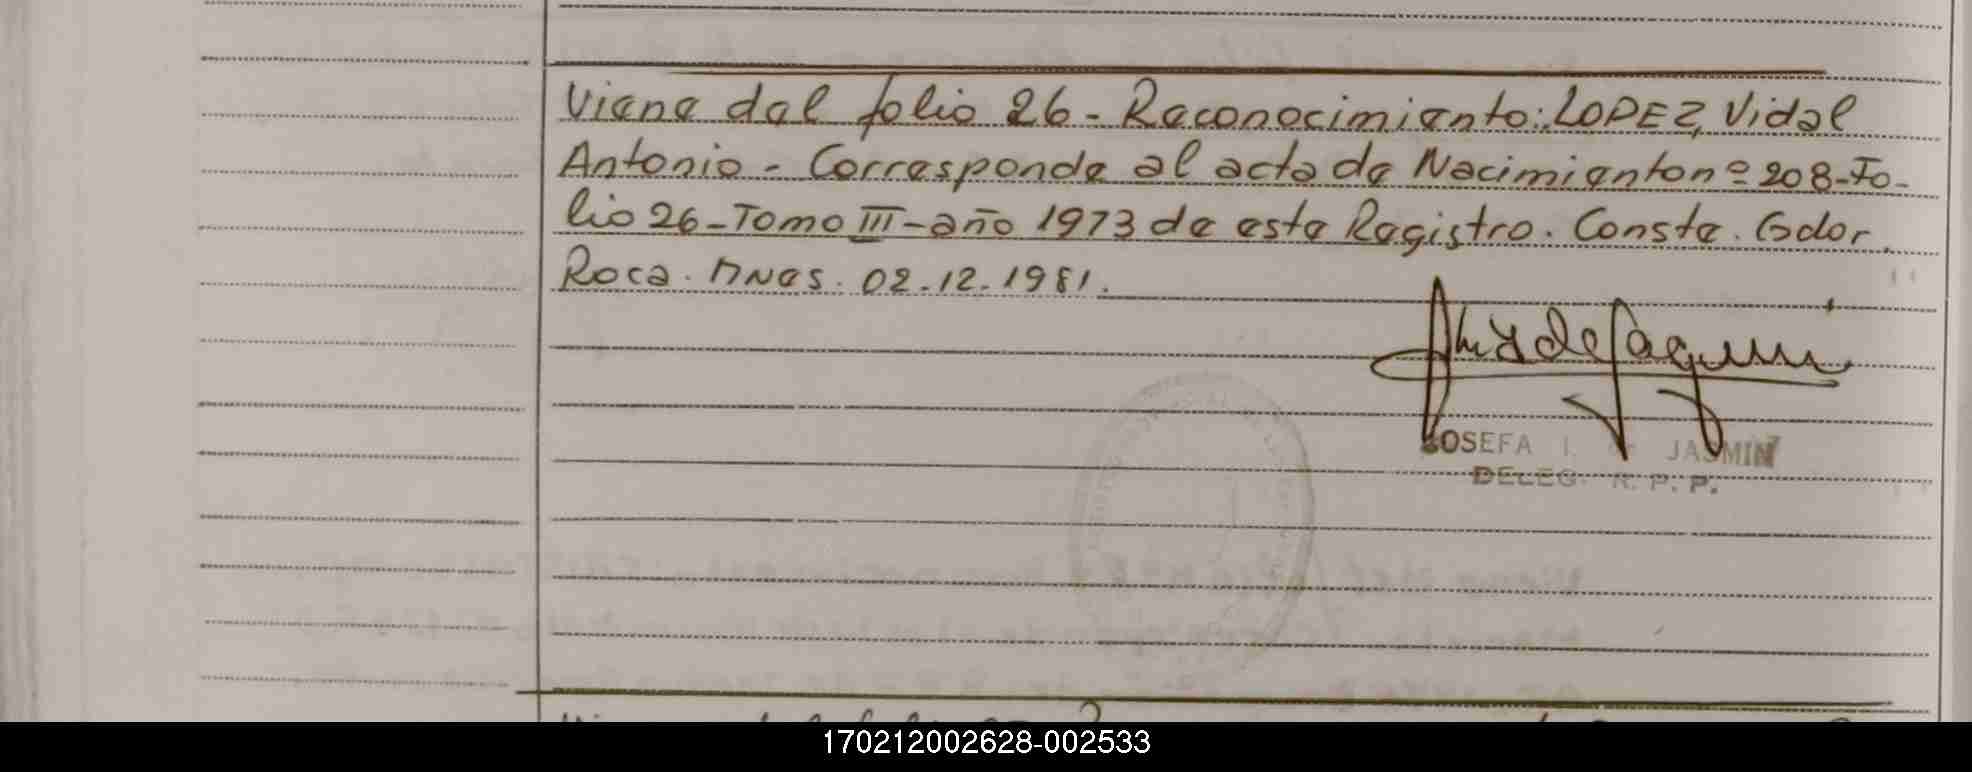 Viene del folio 26 - Reconocimiento: LOPEZ, Vidal
Antonio - Corresponde al acta de Nacimiento nº 208 - Fo-
lio 26 - Tomo III - año 1973 de este Registro. Conste. Gdor.
Roca. Mnes. 02.12.1981.
JOSEFA I. JASMIN
DELEG. R. P. P.
170212002628-002533